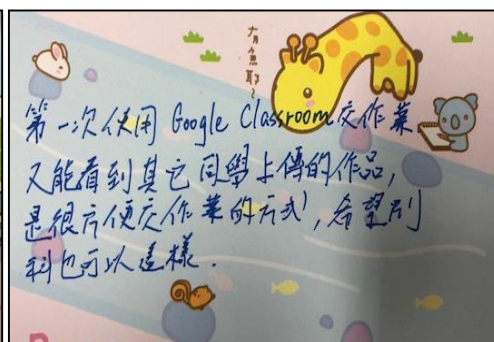 有魚耶~
第一次使用 Google Classroom 交作業
又能看到其它同學上傳的作品,
是很方便交作業的方式,希望別
科也可以這樣.